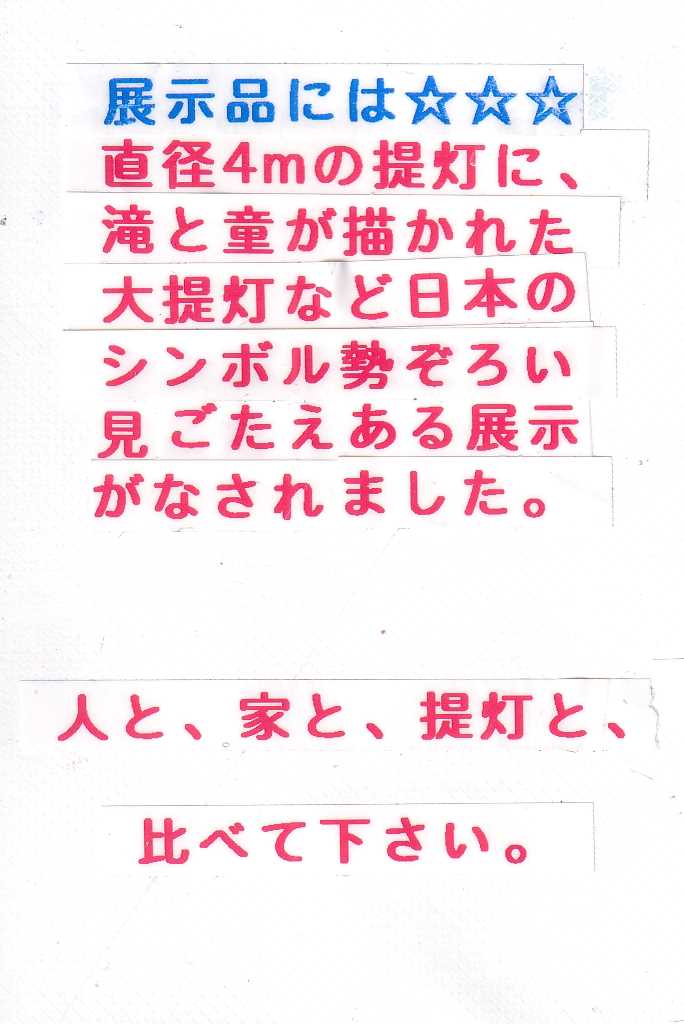 展示品には☆☆☆
直径4mの提灯に、
滝と童が描かれた
大提灯など日本の
シンボル勢ぞろい
見ごたえある展示
がなされました。
人と、家と、提灯と、
比べて下さい。